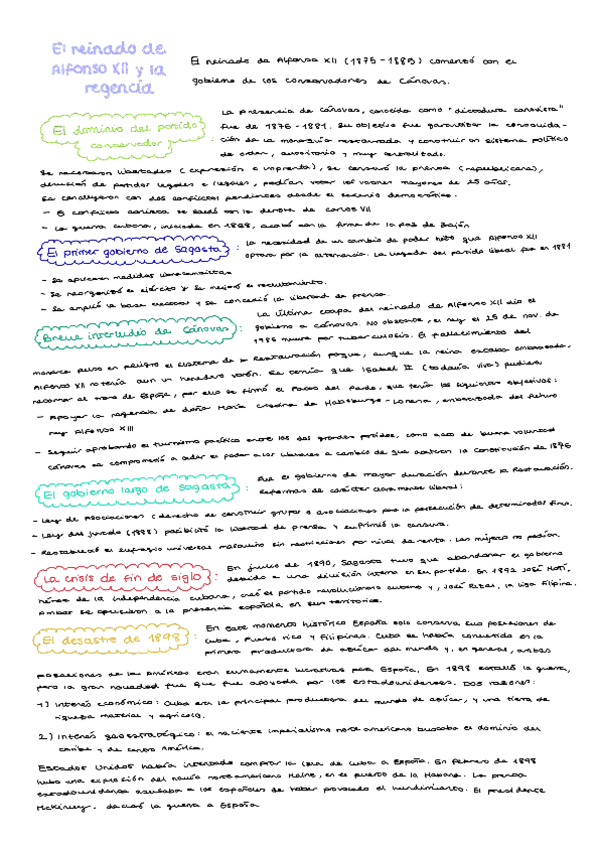 El reinado de
Alfonso XII y la
regencia
El reinado de Alfonso XII (1875-1885) comenzó con el
gobierno de los conservadores de Cánovas.
El dominio del partido
conservador
La presencia de Cánovas, conocida como "dictadura canovista"
fue de 1876-1881. Su objetivo fue garantizar la consolida-
ción de la monarquía restaurada y construir un sistema político
de orden, autoritario y muy centralizado.
Se recortaron libertades (expresión e imprenta), se censuró la prensa (republicana),
división de partidos legales e ilegales, podían votar los varones mayores de 25 años.
Se concluyeron con dos conflictos pendientes desde el sexenio democrático.
- El conflicto carlista se saldó con la derrota de Carlos VII
- La guerra cubana, iniciada en 1868, acabó con la firma de la paz de Zanjón
El primer gobierno de Sagasta :
La necesidad de un cambio de poder hizo que Alfonso XII
optara por la alternancia. La llegada del partido liberal fue en 1881
- Se aplicaron medidas
- Se reorganizó el ejército y se mejoró el reclutamiento.
- Se amplió la base electoral y se concedió la libertad de prensa.
Breve interludio de Cánovas :
La última etapa del reinado de Alfonso XII dio el
gobierno a Cánovas. No obstante, el rey el 25 de nov. de
1985 muere por tuberculosis. El fallecimiento del
monarca puso en peligro el sistema de la Restauración porque, aunque la reina estaba embarazada,
Alfonso XII no tenía aún un heredero varón. Se temía que Isabel II (todavía viva) pudiera
retornar al trono de España, por ello se firmó el Pacto del Pardo, que tenía los siguientes objetivos:
- Apoyar la regencia de doña María Cristina de Habsburgo-Lorena, embarazada del futuro
rey Alfonso XIII
- Seguir aprobando el turnismo pacífico entre los dos grandes partidos, como acto de buena voluntad
Cánovas se comprometió a ceder el poder a los liberales a cambio de que acataran la Constitución de 1876
El gobierno largo de Sagasta :
Fue el gobierno de mayor duración durante la Restauración.
Reformas de carácter claramente liberal:
- Ley de Asociaciones (derecho de construir grupos o asociaciones para la persecución de determinados fines.
- Ley del jurado (1888) posibilitó la libertad de prensa y suprimió la censura.
- Restableció el sufragio universal masculino sin restricciones por nivel de renta. Las mujeres no podían.
La crisis de fin de siglo :
En junio de 1890, Sagasta tuvo que abandonar el gobierno
debido a una división interna en su partido. En 1892 José Martí,
héroe de la independencia cubana, creó el partido revolucionario cubano y, José Rizal, la liga Filipina.
Ambos se opusieron a la presencia española en sus territorios.
El desastre de 1898 :
En este momento histórico España solo conserva sus posesiones de
Cuba, Puerto rico y Filipinas. Cuba se había convertido en la
primera productora de azúcar del mundo y, en general, ambas
posesiones de las américas eran sumamente lucrativas para España. En 1898 estalló la guerra,
pero la gran novedad fue que fue apoyada por los estadounidenses. Dos razones:
1) Interés económico: Cuba era la principal productora del mundo de azúcar, y una tierra de
riqueza material y agrícola.
2) Interés geoestratégico: el naciente imperialismo norte americano buscaba el dominio del
caribe y de centro América.
Estados Unidos había intentado comprar la isla de Cuba a España. En febrero de 1898
hubo una explosión del navío norteamericano Maine, en el puerto de la Habana. La prensa
estadounidense acusaba a los españoles de haber provocado el hundimiento. El presidente
McKinley declaró la guerra a España